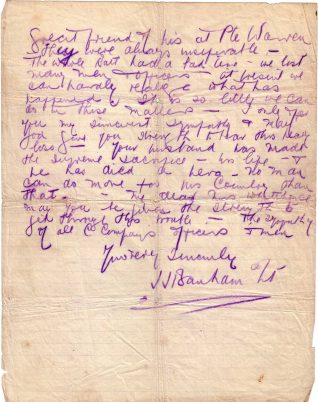 Great friend of his at Pte Warren
They were always inseparable —
The whole Batt had a bad time — we lost
many men & officers — at present we
can hardly realise what has
happened & it is so little we can
do in these matters — I only
you my sincerest sympathy & may
God give you strength to bear this heavy
loss — your husband has made
the supreme sacrifice — his life — &
he has died a hero — no man
can do more for his country than
that —
may you be given the strength to
get through this trouble — The sympathy
of all C Company Officers & men
Yours very Sincerely
JJ Banham 2/Lt